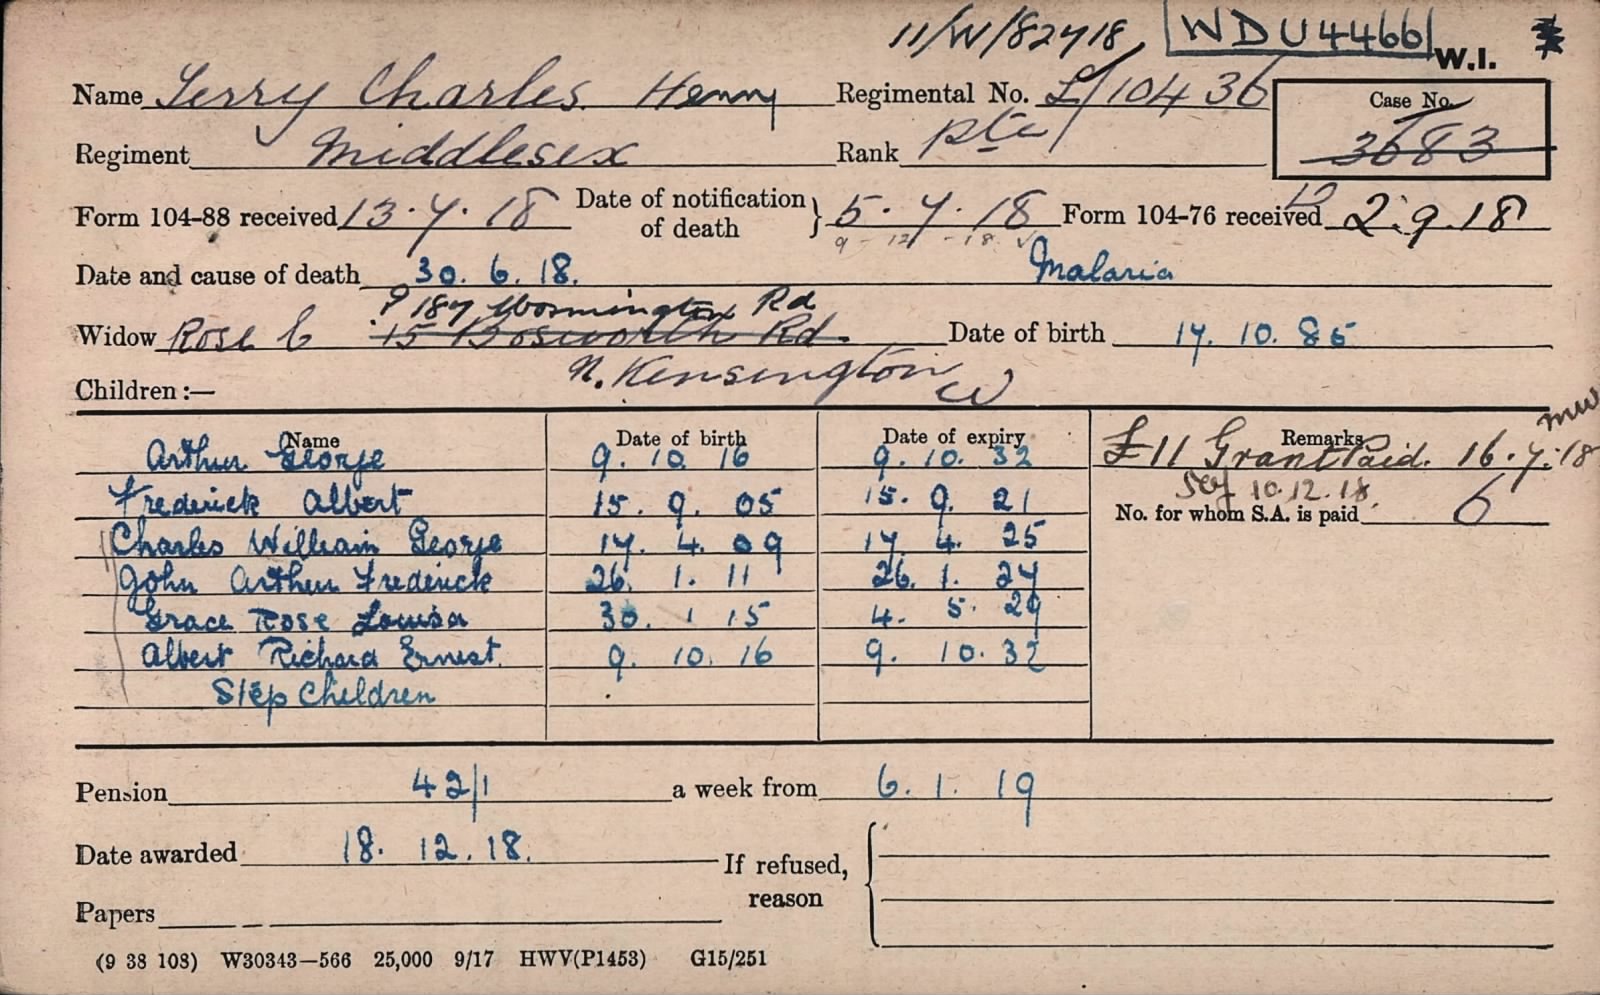 11/W/82718, WDU4466 W.I.
Name Terry Charles Henry Regimental No. L/10436 Case No. 3683
Regiment Middlesex Rank Pte
Form 104-88 received 13.7.18 Date of notification of death } 5.7.18 Form 104-76 received 12.9.18
9-12-18
Date and cause of death 30.6.18. Malaria
? 187 Wornington Rd
Widow Rose C 15 Bosworth Rd. Date of birth 17.10.85
N. Kensington W
Children :—
Name Date of birth Date of expiry Remarks
Arthur George 9. 10. 16 9. 10. 32 £11 Grant Paid. 16.7.18 MW
Sef 10.12.18
Frederick Albert 15. 9. 05 15. 9. 21 No. for whom S.A. is paid 6
Charles William George 17. 4. 09 17. 4. 25
John Arthur Frederick 26. 1. 11 26. 1. 27
Grace Rose Louisa 30. 1 15 4. 5. 29
Albert Richard Ernest. 9. 10. 16 9. 10. 32
Step Children
Pension 42/1 a week from 6. 1. 19
Date awarded 18. 12. 18. If refused, reason
Papers
(9 38 108) W30343—566 25,000 9/17 HWV(P1453) G15/251